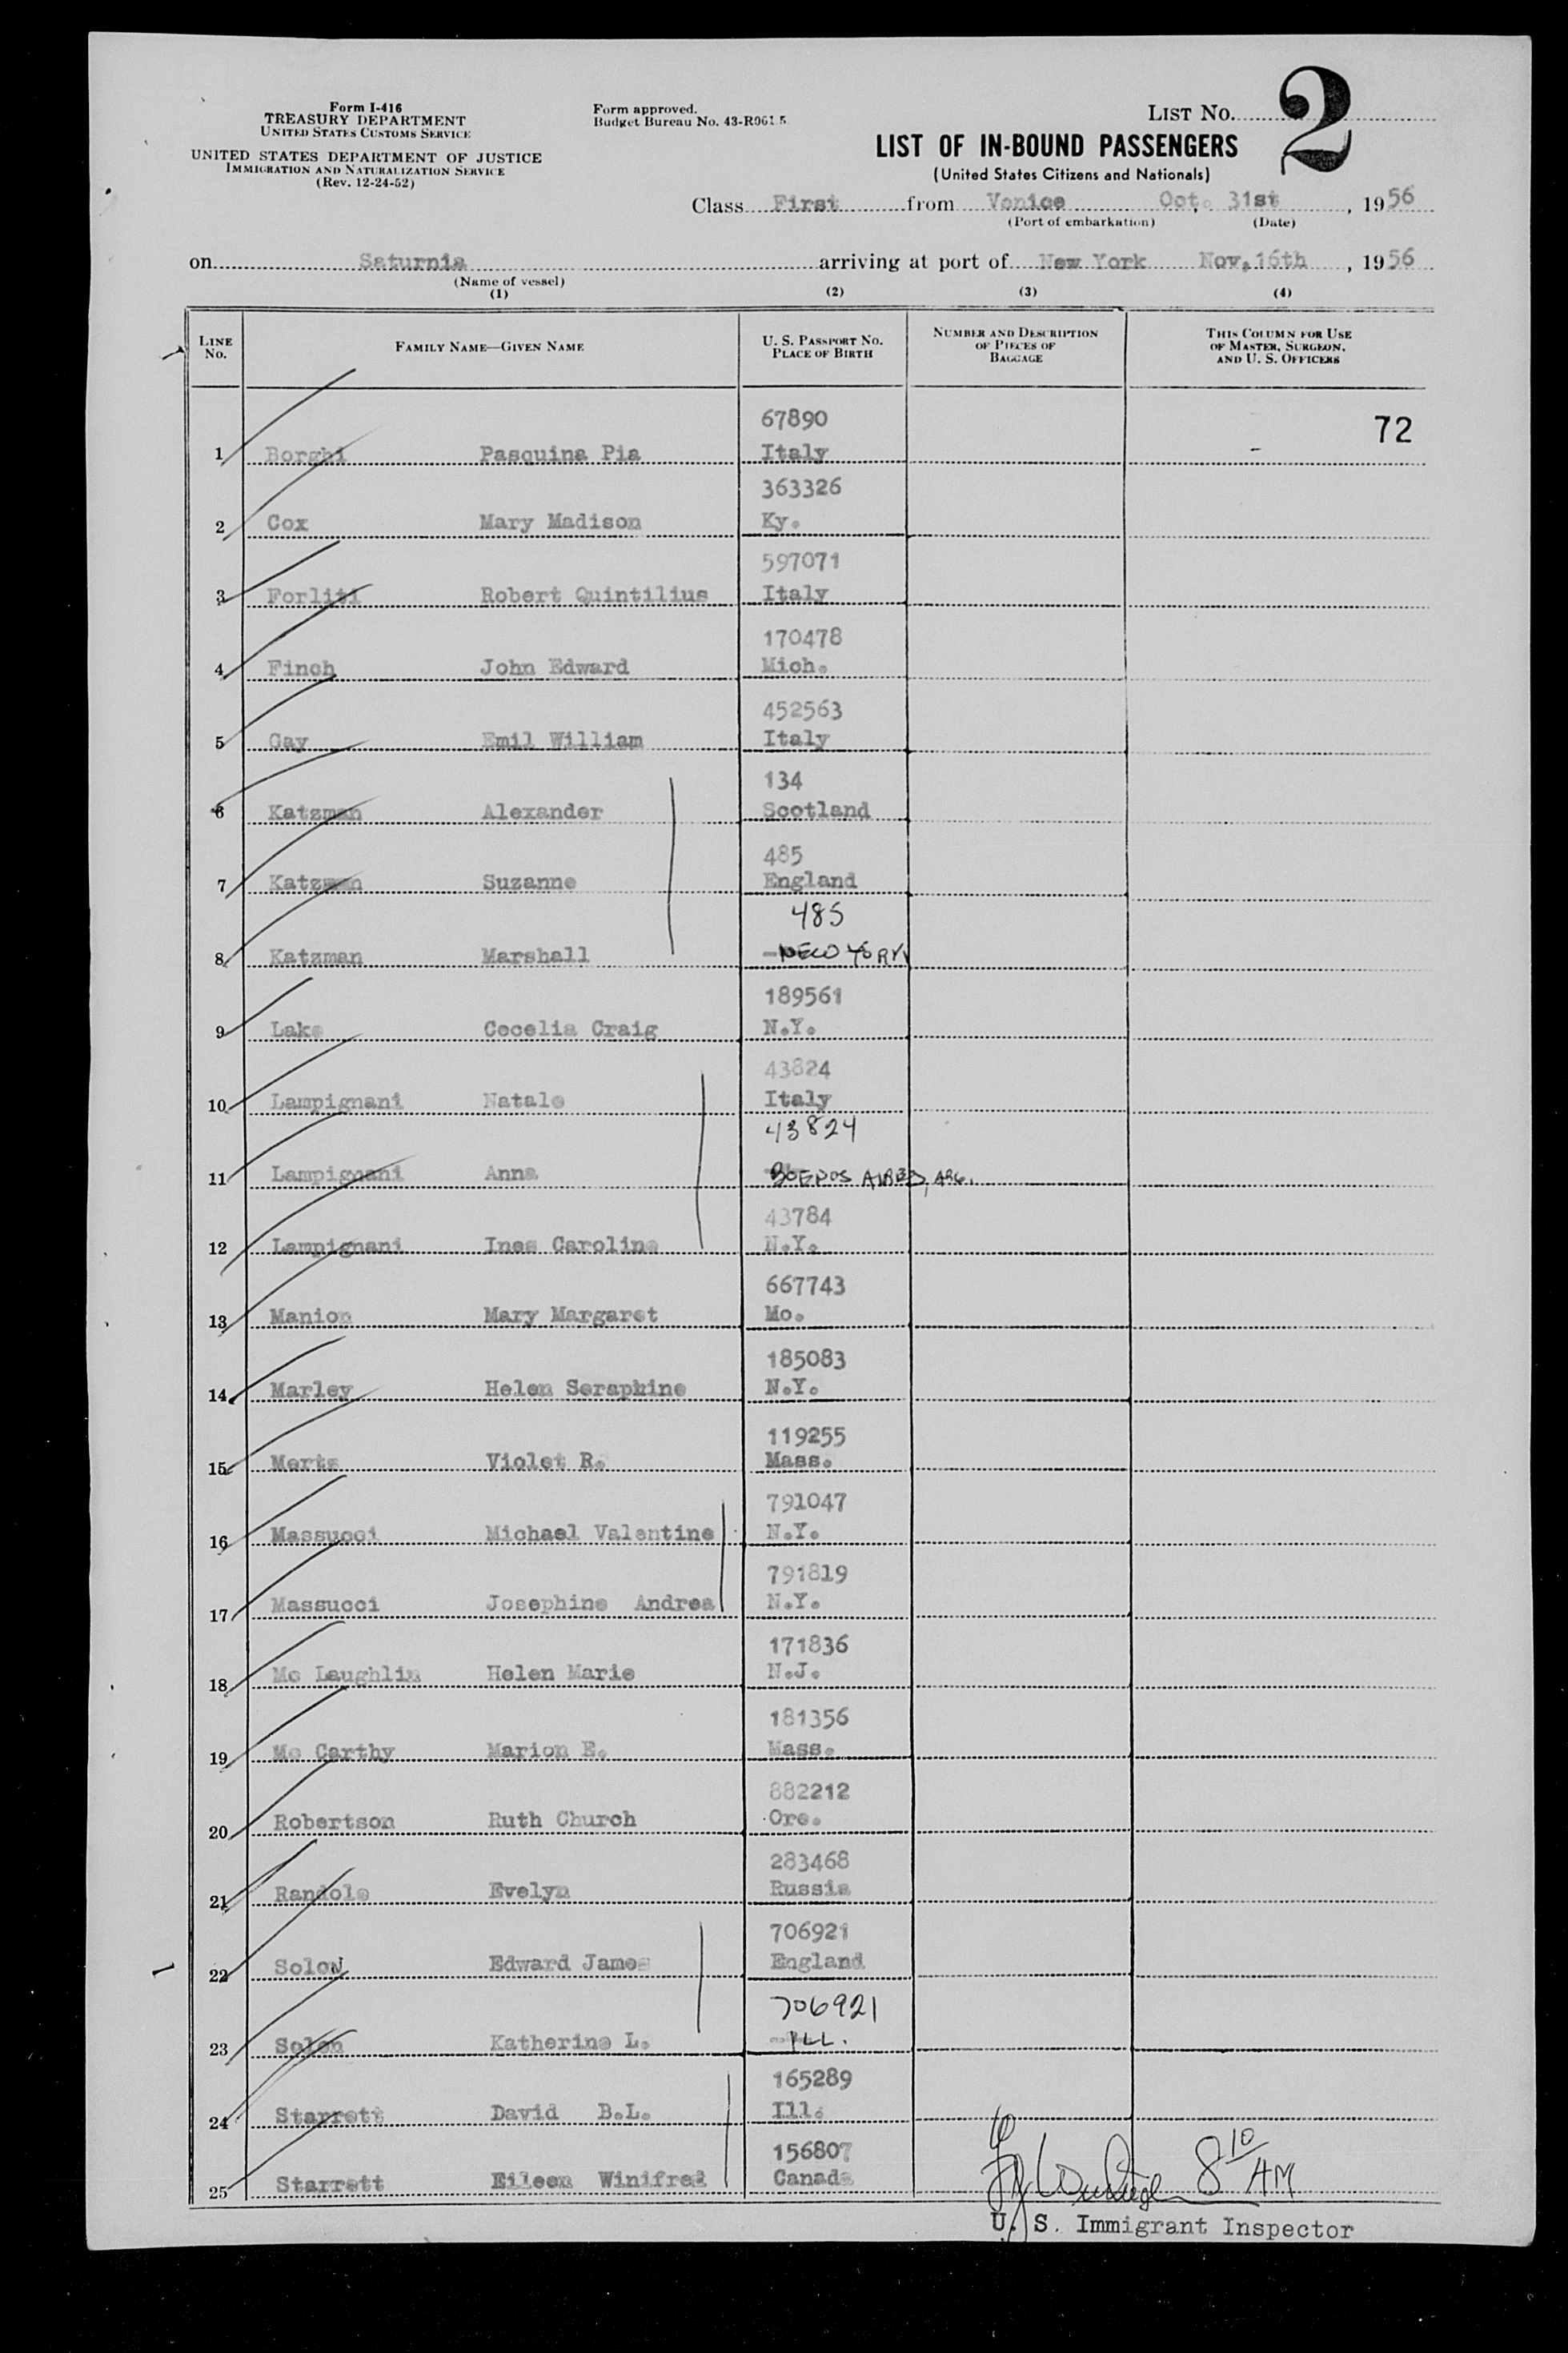 Form I-416
TREASURY DEPARTMENT
UNITED STATES CUSTOMS SERVICE
UNITED STATES DEPARTMENT OF JUSTICE
IMMIGRATION AND NATURALIZATION SERVICE
(Rev. 12-24-52)
Form approved.
Budget Bureau No. 43-R061.5
LIST No. 2
LIST OF IN-BOUND PASSENGERS
(United States Citizens and Nationals)
Class First from Venice Oct. 31st, 1956
(Port of embarkation) (Date)
on Saturnia arriving at port of New York Nov. 16th, 1956
(Name of vessel)
(1) (2) (3) (4)
LINE No. FAMILY NAME—GIVEN NAME U. S. PASSPORT No. PLACE OF BIRTH NUMBER AND DESCRIPTION OF PIECES OF BAGGAGE THIS COLUMN FOR USE OF MASTER, SURGEON, AND U. S. OFFICERS
67890 72
1 Borghi Pasquina Pia Italy
363326
2 Cox Mary Madison Ky.
597071
3 Forliti Robert Quintilius Italy
170478
4 Finch John Edward Mich.
452563
5 Gay Emil William Italy
134
6 Katzman Alexander Scotland
485
7 Katzman Suzanne England
485
8 Katzman Marshall NEW YORK
189561
9 Lake Cecelia Craig N.Y.
43824
10 Lampignani Natale Italy
43824
11 Lampignani Anna BUENOS AIRES, ARG.
43784
12 Lampignani Ines Caroline N.Y.
667743
13 Manion Mary Margaret Mo.
185083
14 Marley Helen Seraphine N.Y.
119255
15 Violet R. Mass.
791047
16 Massucci Michael Valentine N.Y.
791819
17 Massucci Josephine Andrea N.Y.
171836
18 Mc Laughlin Helen Marie N.J.
181356
19 Mc Carthy Marion E. Mass.
882212
20 Robertson Ruth Church Ore.
283468
21 Randole Evelyn Russia
706921
22 Solon Edward James England
706921
23 Solon Katherine L. ILL.
165289
24 Starrett David B.L. Ill.
156807
25 Starrett Eileen Winifred Canada
8 10 AM
U. S. Immigrant Inspector